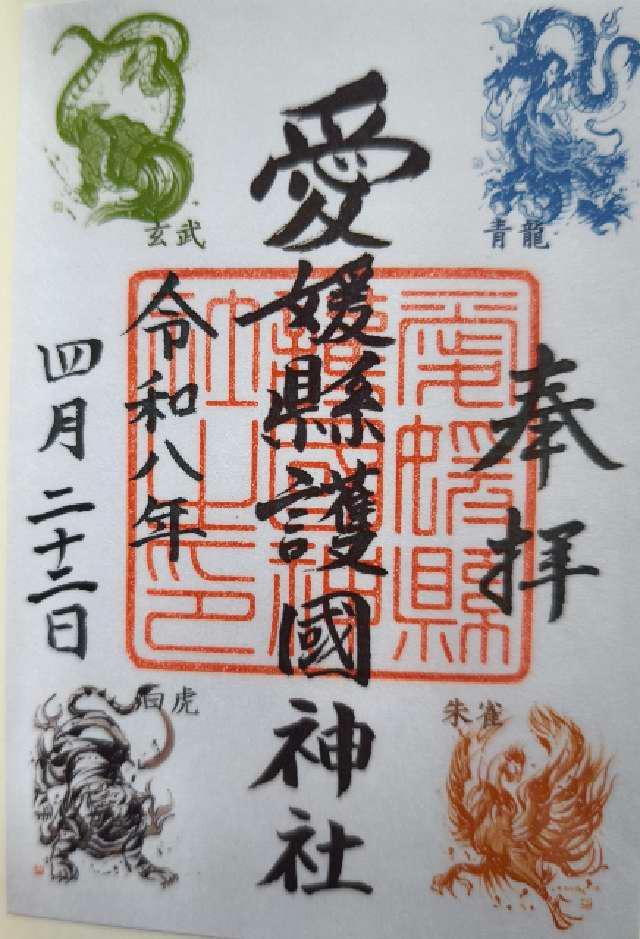 奉拝
愛媛縣護國神社
令和八年
四月二十二日
愛媛縣
護國神
社之印
青龍
玄武
朱雀
白虎